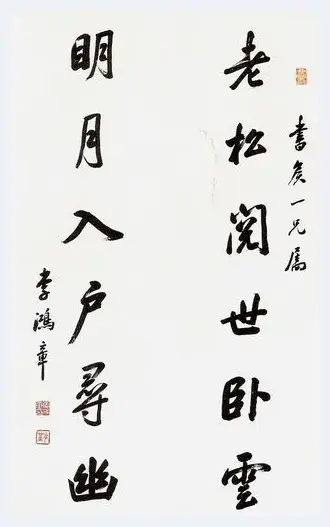 書矦一兄屬
老松閱世卧雲
明月入户尋幽
李鴻章